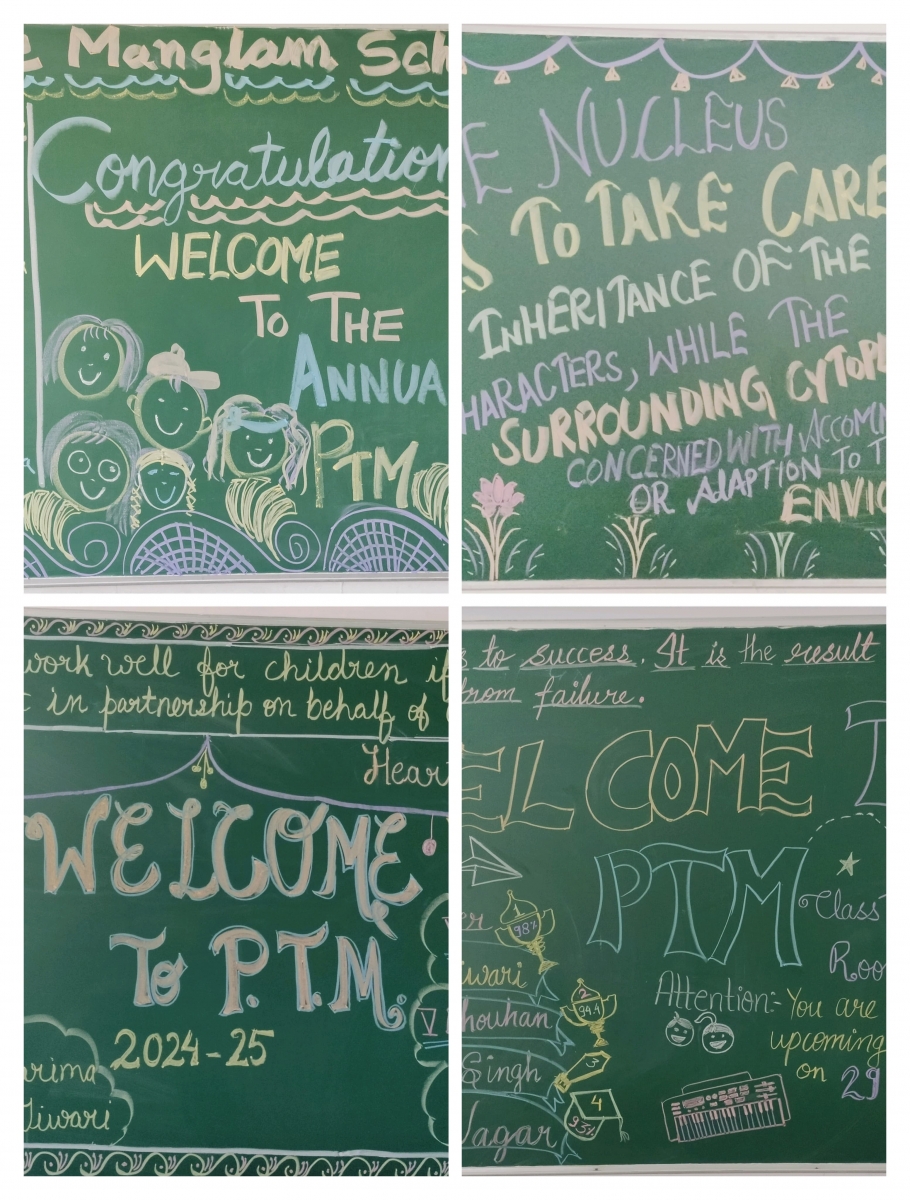 Manglam Sch
Congratulation
WELCOME
TO THE
ANNUA
PTM
E NUCLEUS
S TO TAKE CARE
INHERITANCE OF THE
HARACTERS, WHILE THE
SURROUNDING CYTOPL
CONCERNED WITH ACCOMM
OR ADAPTION TO T
ENVIO
work well for children if
t in partnership on behalf of
Hear
WELCOME
To P.T.M.
2024-25
arima
Tiwari
V
s to success. It is the result
from failure.
EL COME T
PTM
Class
Roo
Attention:- You are
upcoming
on 29
er
1
98%
iwari
2
94.4
houhan
3
Singh
4
93%
Nagar